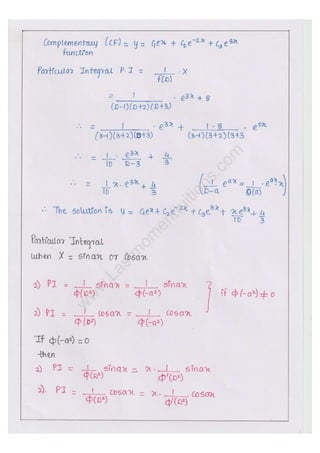 Complementary (CF) = y = C₁eˣ + C₂e⁻²ˣ + C₃e³ˣ
function
Particular Integral P.I = 1/f(D) · X
= 1/((D-1)(D+2)(D+3)) · e³ˣ + 8
∴ = 1/((3-1)(3+2)(D+3)) · e³ˣ + 1·8/((3-1)(3+2)(3+3)) · e⁰ˣ
∴ = 1/10 · e³ˣ/(D-3) + 4/3
∴ = 1/10 x·e³ˣ + 4/3 (1/(D-a) eᵃˣ = 1/Φ(a) · eᵃˣ·x)
∴ The solution is y = C₁eˣ + C₂e⁻²ˣ + C₃e³ˣ + xe³ˣ/10 + 4/3
Particular Integral
when X = sinax or cosax
1) PI = 1/Φ(D²) sinax = 1/Φ(-a²) sinax
if Φ(-a²) ≠ 0
2) PI = 1/Φ(D²) cosax = 1/Φ(-a²) cosax
If Φ(-a²) = 0
then
1) PI = 1/Φ(D²) sinax = x · 1/Φ'(D²) sinax
2). PI = 1/Φ(D²) cosax = x · 1/Φ'(D²) cosax
www.Lastmomenttuitions.com